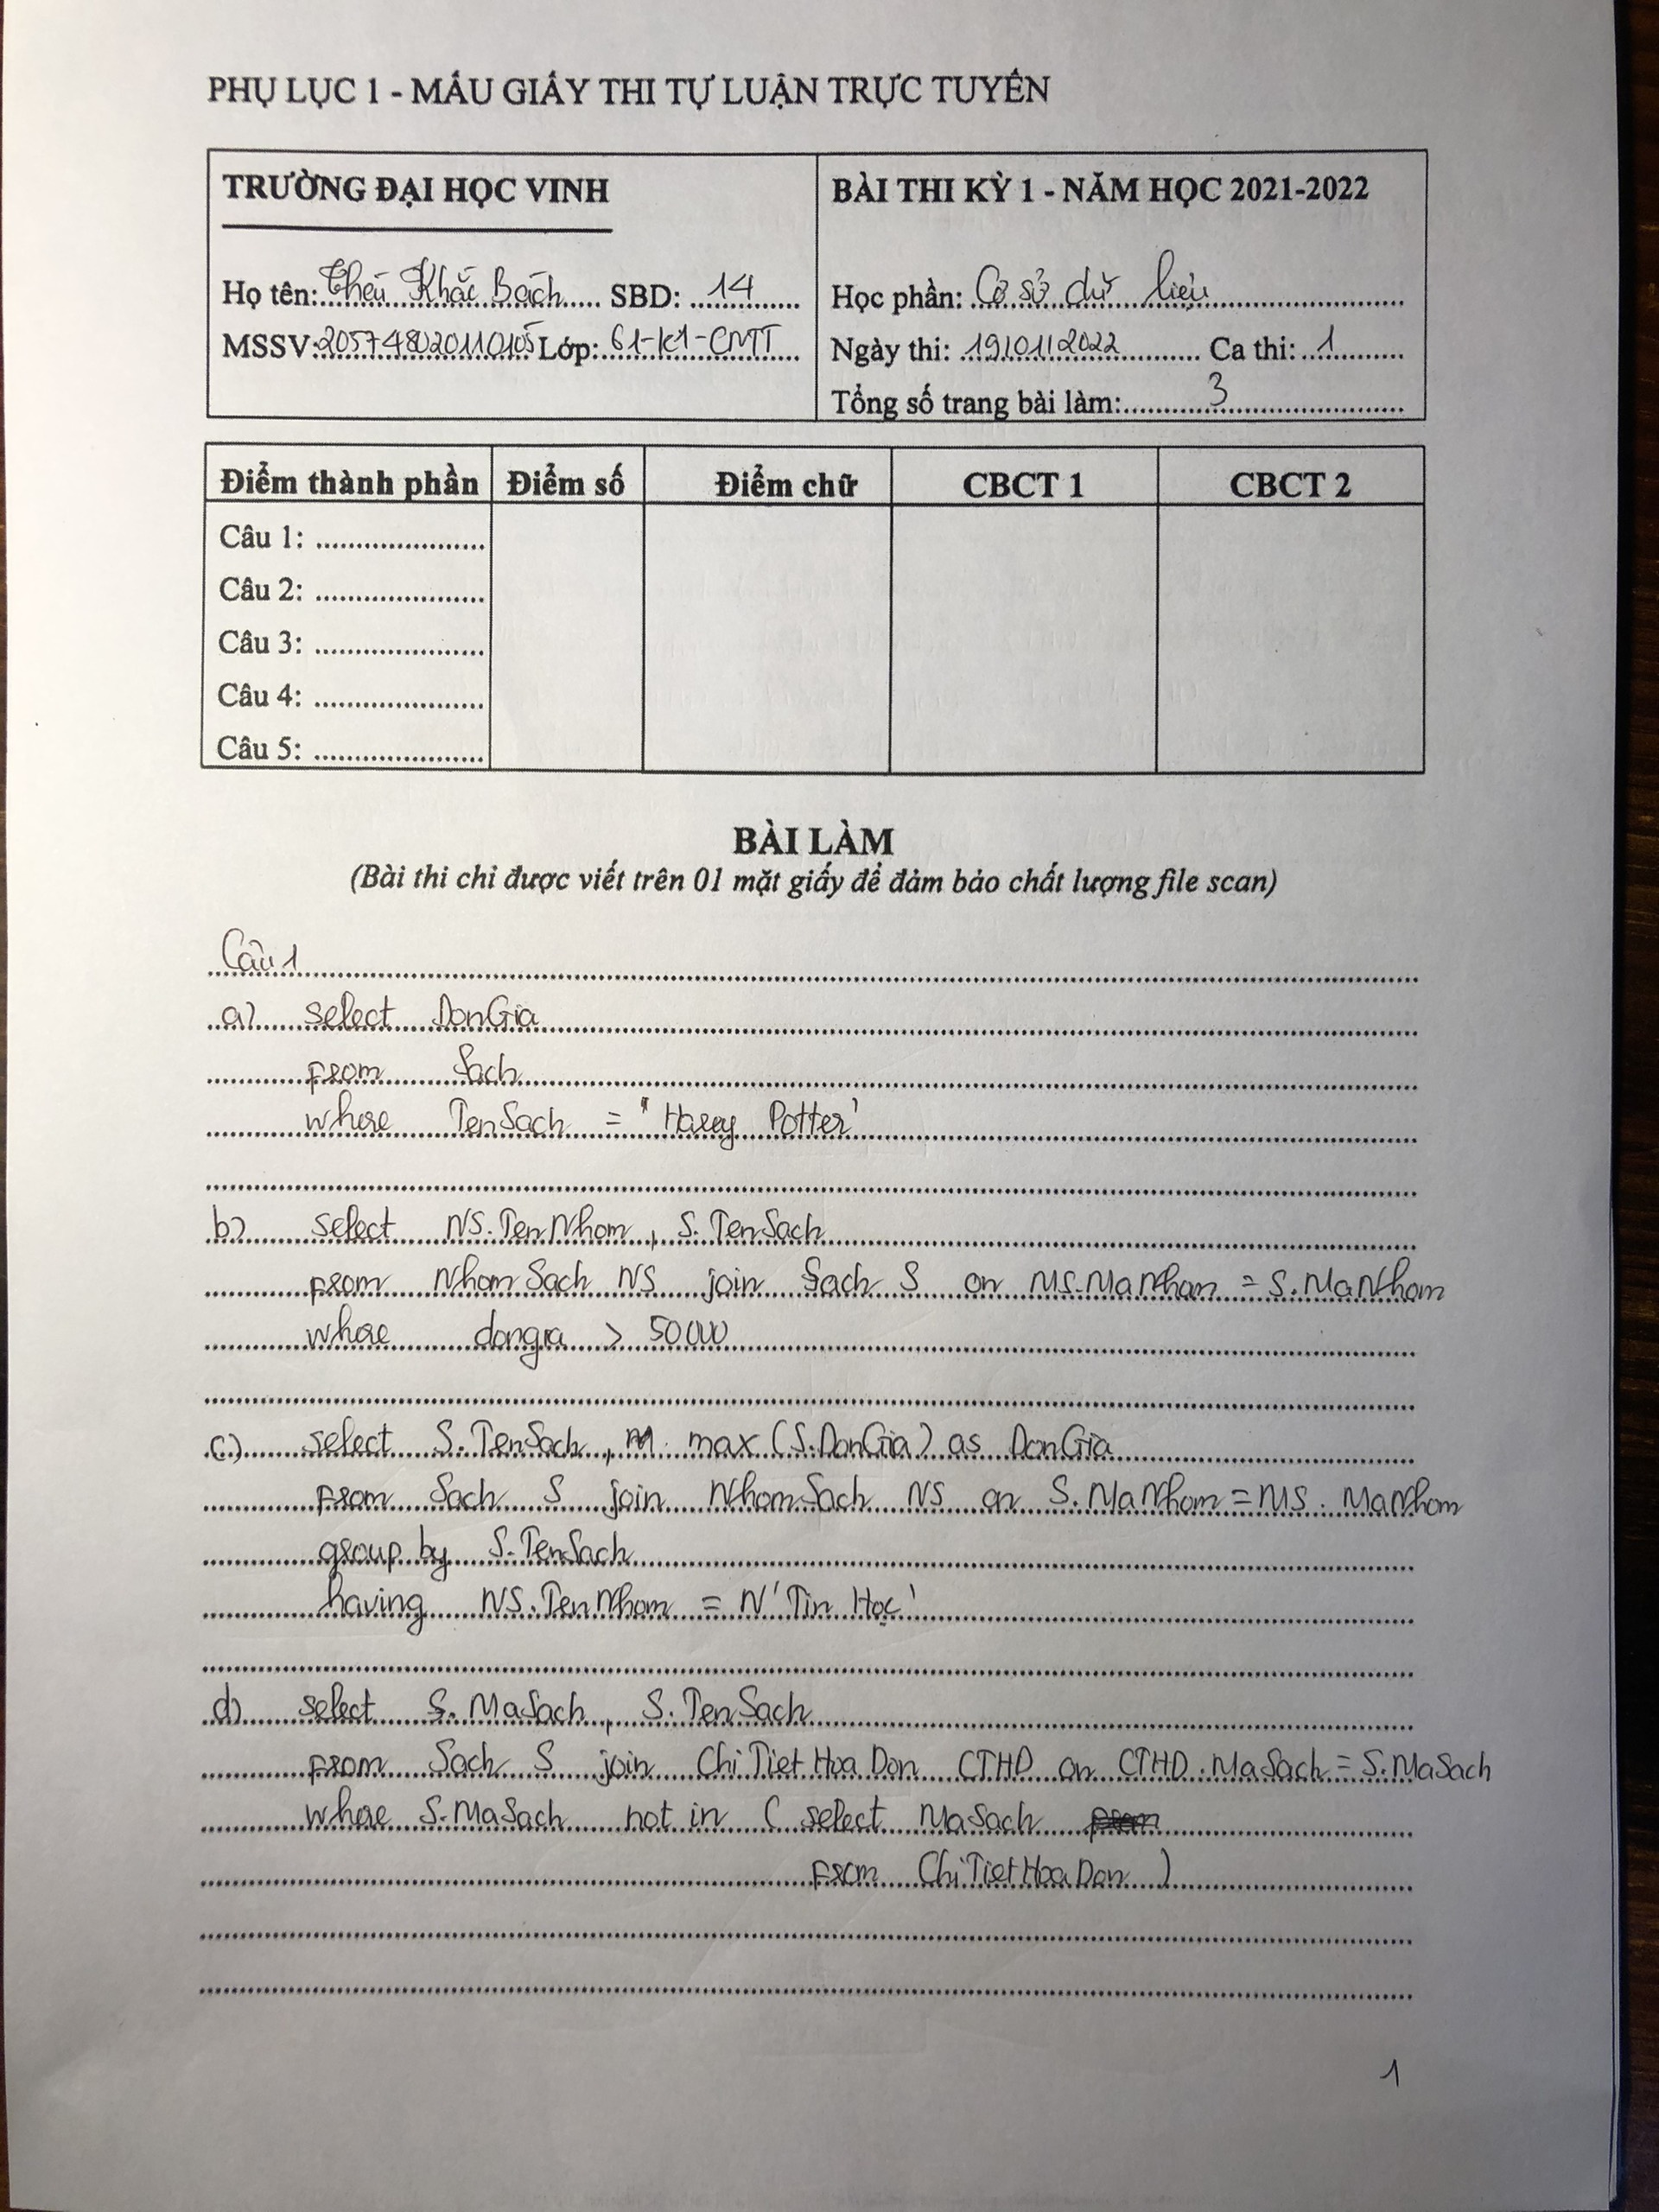 PHỤ LỤC 1 - MẪU GIẤY THI TỰ LUẬN TRỰC TUYẾN
TRƯỜNG ĐẠI HỌC VINH
Họ tên: Thái Khắc Bách SBD: 14
MSSV: 205748020110105 Lớp: 61-K1-CNTT
BÀI THI KỲ 1 - NĂM HỌC 2021-2022
Học phần: Cơ sở dữ liệu
Ngày thi: 19/01/2022 Ca thi: 1
Tổng số trang bài làm: 3
Điểm thành phần Điểm số Điểm chữ CBCT 1 CBCT 2
Câu 1:
Câu 2:
Câu 3:
Câu 4:
Câu 5:
BÀI LÀM
(Bài thi chỉ được viết trên 01 mặt giấy để đảm bảo chất lượng file scan)
Câu 1
a) select DonGia
from Sach
where TenSach = 'Harry Potter'
b) select NS.TenNhom, S.TenSach
from NhomSach NS join Sach S on NS.MaNhom = S.MaNhom
where dongia > 50000
c) select S.TenSach, max (S.DonGia) as DonGia
from Sach S join NhomSach NS on S.MaNhom = NS.MaNhom
group by S.TenSach
having NS.TenNhom = N'Tin Học'
d) select S.MaSach, S.TenSach
from Sach S join ChiTietHoaDon CTHD on CTHD.MaSach = S.MaSach
where S.MaSach not in ( select MaSach
from ChiTietHoaDon )
1